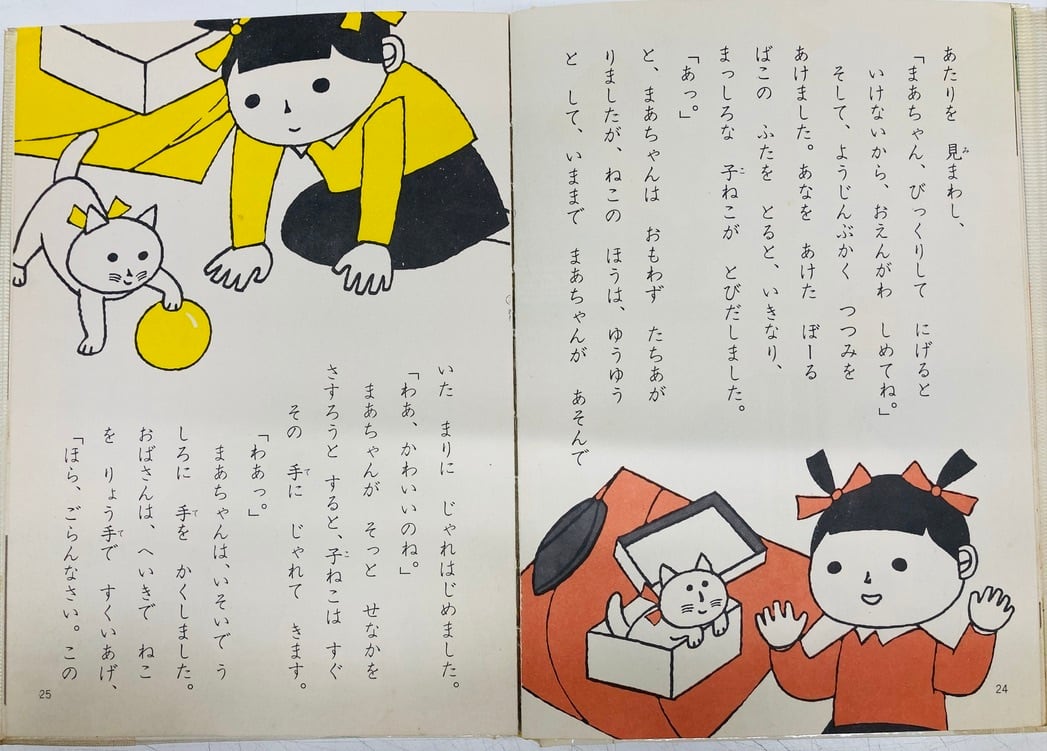 あたりを　見まわし、
「まあちゃん、びっくりして　にげると
いけないから、おえんがわ　しめてね。」
そして、ようじんぶかく　つつみを
あけました。あなを　あけた　ぼーる
ばこの　ふたを　とると、いきなり、
まっしろな　子ねこが　とびだしました。
「あっ。」
と、まあちゃんは　おもわず　たちあが
りましたが、ねこの　ほうは、ゆうゆう
と　して、いままで　まあちゃんが　あそんで
24
いた　まりに　じゃれはじめました。
「わあ、かわいいのね。」
まあちゃんが　そっと　せなかを
さすろうと　すると、子ねこは　すぐ
その　手に　じゃれて　きます。
「わあっ。」
まあちゃんは、いそいで　う
しろに　手を　かくしました。
おばさんは、へいきで　ねこ
を　りょう手で　すくいあげ、
「ほら、ごらんなさい。この
25